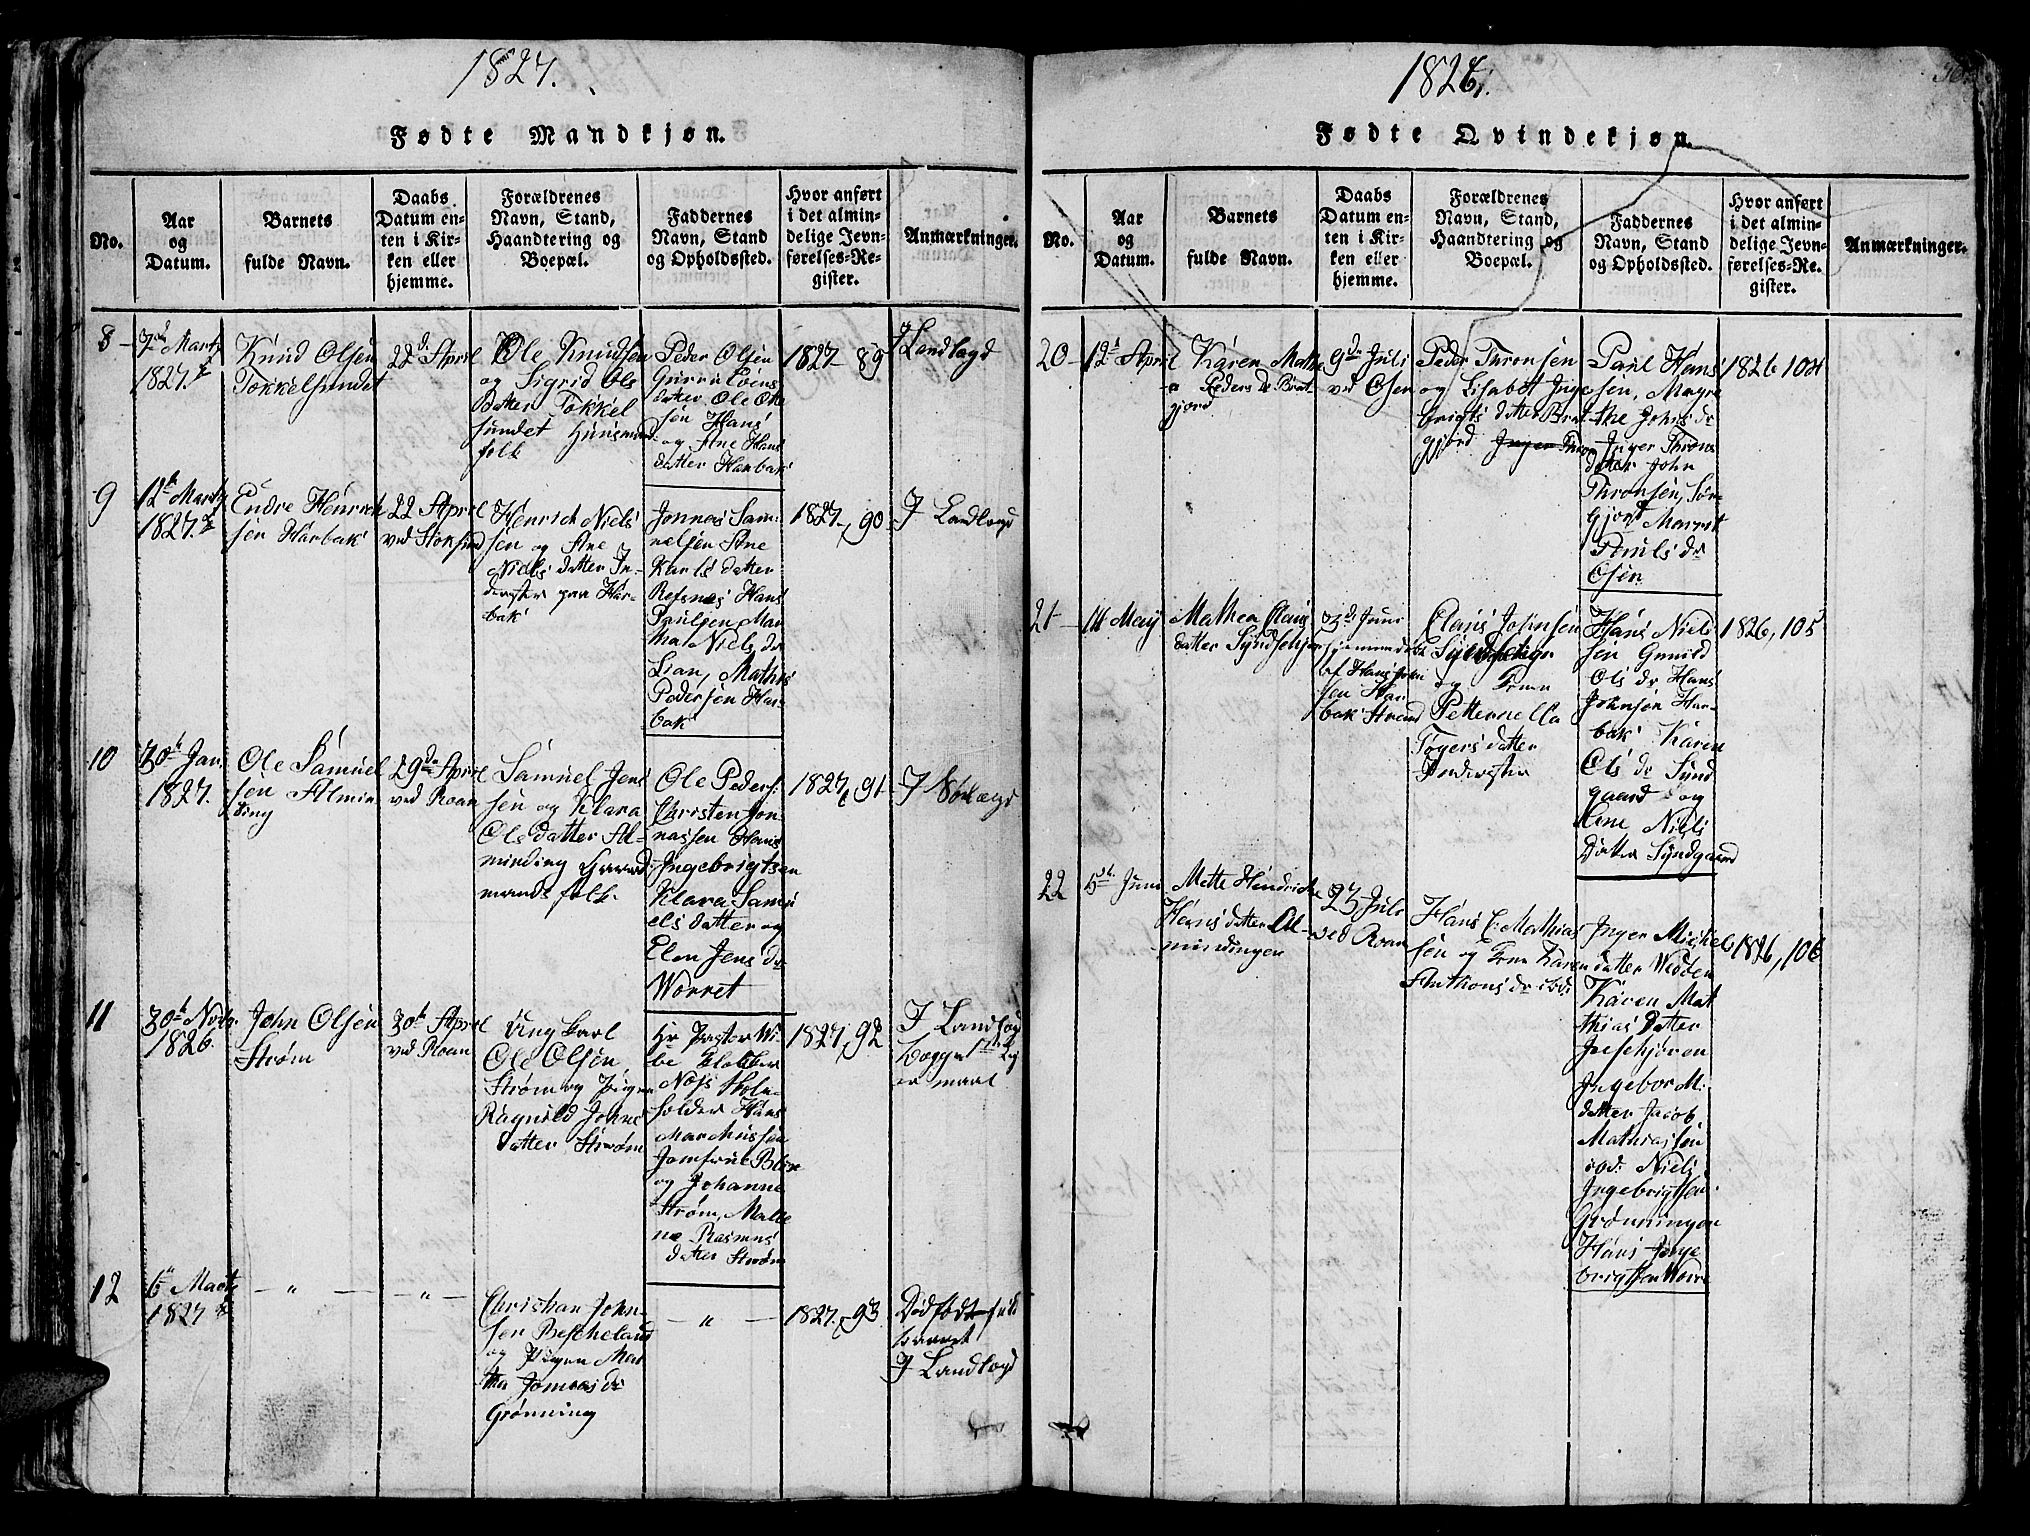 1827.
Fødte Mandkjøn.
No.
Aar
og
Datum.
Barnets
fulde Navn.
Daabs
Datum en-
ten i Kir-
ken eller
hjemme.
Forældrenes
Navn, Stand,
Haandtering og
Boepæl.
Faddernes
Navn, Stand
og Opholdssted.
Hvor anført
i det almin-
delige Jevn-
førelses-Re-
gister.
Anmærkninger.
8
7de Martz
1827.
Knud Olsen
Tokkelsundet
22d April
Ole Knudsen
og Sigrid Ols
Datter Tokkel
sundet Huusmand
folk
Peder Olsen
Guru Eoens
datter Ole Ole
sen Hans
og Ane Hans
datter Harbak
1827 89
I Landlægd
9
12te Martz
1827
Endre Henrich
sen Harbak
22 April
ved Stoksund
Henrich Niels
sen og Ane
Niels datter In-
derster paa Har-
bak
Jonnas Sam-
uelsen Ane
Karls datter
Refsnes Hans
Paulsen Mar
tha Niels dr
Lian, Mathis
Pedersen Har-
bak
1827, 90
I Landlægd
10
30te Jan.
1827.
Ole Samuel
sen Almin
ding
29de April
ved Roan
Samuel Jens
sen og Klara
Olsdatter Al-
minding Gaard
mands folk
Ole Peders.
Christen Jon-
nassen Hans
Ingebrigtsen
Klara Samu
els datter og
Elen Jens dr
Worret
1827, 91
I Søelægd
11
30te Novbr.
1826.
John Olsen
Strøm
30te April
ved Roan
Ung karl
Ole Olsen
Strøm og Pigen
Ragnild Johns
datter Strøm
Hr Pastor Wi-
be Klokker
Nøis Skole-
holder Hans
Marchussen
Jomfrue Blix
og Johanne
Strøm, Malle
na Rasmus
datter Strøm
1827, 92
I Landlægd
begges 1ste Lej
er maal
12
6te Martz
1827
— " —
— " —
Christian John-
sen Bescheland
og Pigen Mar
tha Jonnas dr
Grønning
— " —
1827, 93
Dødfødt fuld
baaret
I Landlægd
1826.
Fødte Qvindekjøn.
No.
Aar
og
Datum.
Barnets
fulde Navn.
Daabs
Datum en-
ten i Kir-
ken eller
hjemme.
Forældrenes
Navn, Stand,
Haandtering og
Boepæl.
Faddernes
Navn, Stand
og Opholdssted.
Hvor anført
i det almin-
delige Jevn-
førelses-Re-
gister.
Anmærkninger.
20
12te April
Karen Mathe
a Peders dr Brat
gjerd
9de Juli
ved Osen
Peder Thronsen
og Lisabet Inge
brigts datter Brat
gjerd Inger Thron
Paul Hans
sen, Magre
the Johns dr
Inger Throns
datter John
Thronsen, Sør
Gjort Marrit
Pauls dr
Osen
1826 104
21
14 May
Mathea Olaus
datter Syndsehjer
3de Juni
hjemmedøbt
af Hans John
sen Har
bak Strand
Olaus Johnsen
Syndsehjer
og Kone
Petternella
Tøgers datter
Inderster
Hans Niels
sen Gunild
Ols dr Hans
Johnsen Har-
bak Karen
Ols dr Synd
gaard og
Ane Niels
Datter Syndgaard
1826, 105
22
5te Juni
Mette Hendricka
Hans datter Al-
mindingen
23 Juli
ved Roan
Hans C. Mathias
sen og Kone Karen
Anthons dr ibd:
Inger Michels
datter Wedden
Karen Mat
thias datter
Jossehjoren
Ingebor M:
datter Jacob
Mathiassen
ibd: Niels
Ingebrigtsen
Grønningen
Hans Inge
brigtsen Worre
1826, 106